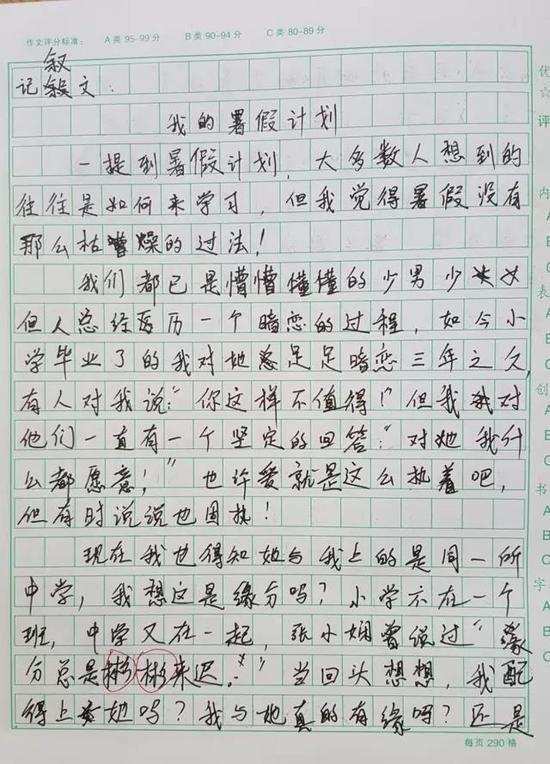 作文评分标准： A类 95-99分 B类 90-94分 C类 80-89分
记叙文：
我的暑假计划
一提到暑假计划，大多数人想到的
往往是如何来学习，但我觉得暑假没有
那么枯燥的过法！
我们都已是懵懵懂懂的少男少女
但人总经历一个暗恋的过程，如今小
学毕业了的我对她足足暗恋三年之久，
有人对我说："你这样不值得！"但我对
他们一直有一个坚定的回答："对她我什
么都愿意！"也许爱就是这么执着吧，
但有时说说也固执！
现在我也得知她与我上的是同一所
中学，我想这是缘分吗？小学不在一个
班，中学又在一起，张小娴曾说过"缘
分总是彬彬来迟。"当回头想想，我配
得上她吗？我与她真的有缘吗？还是
每页 290 格
优
☆
评
内
A
B
C
表
A
B
C
创
A
B
C
书
A
B
C
字
A
B